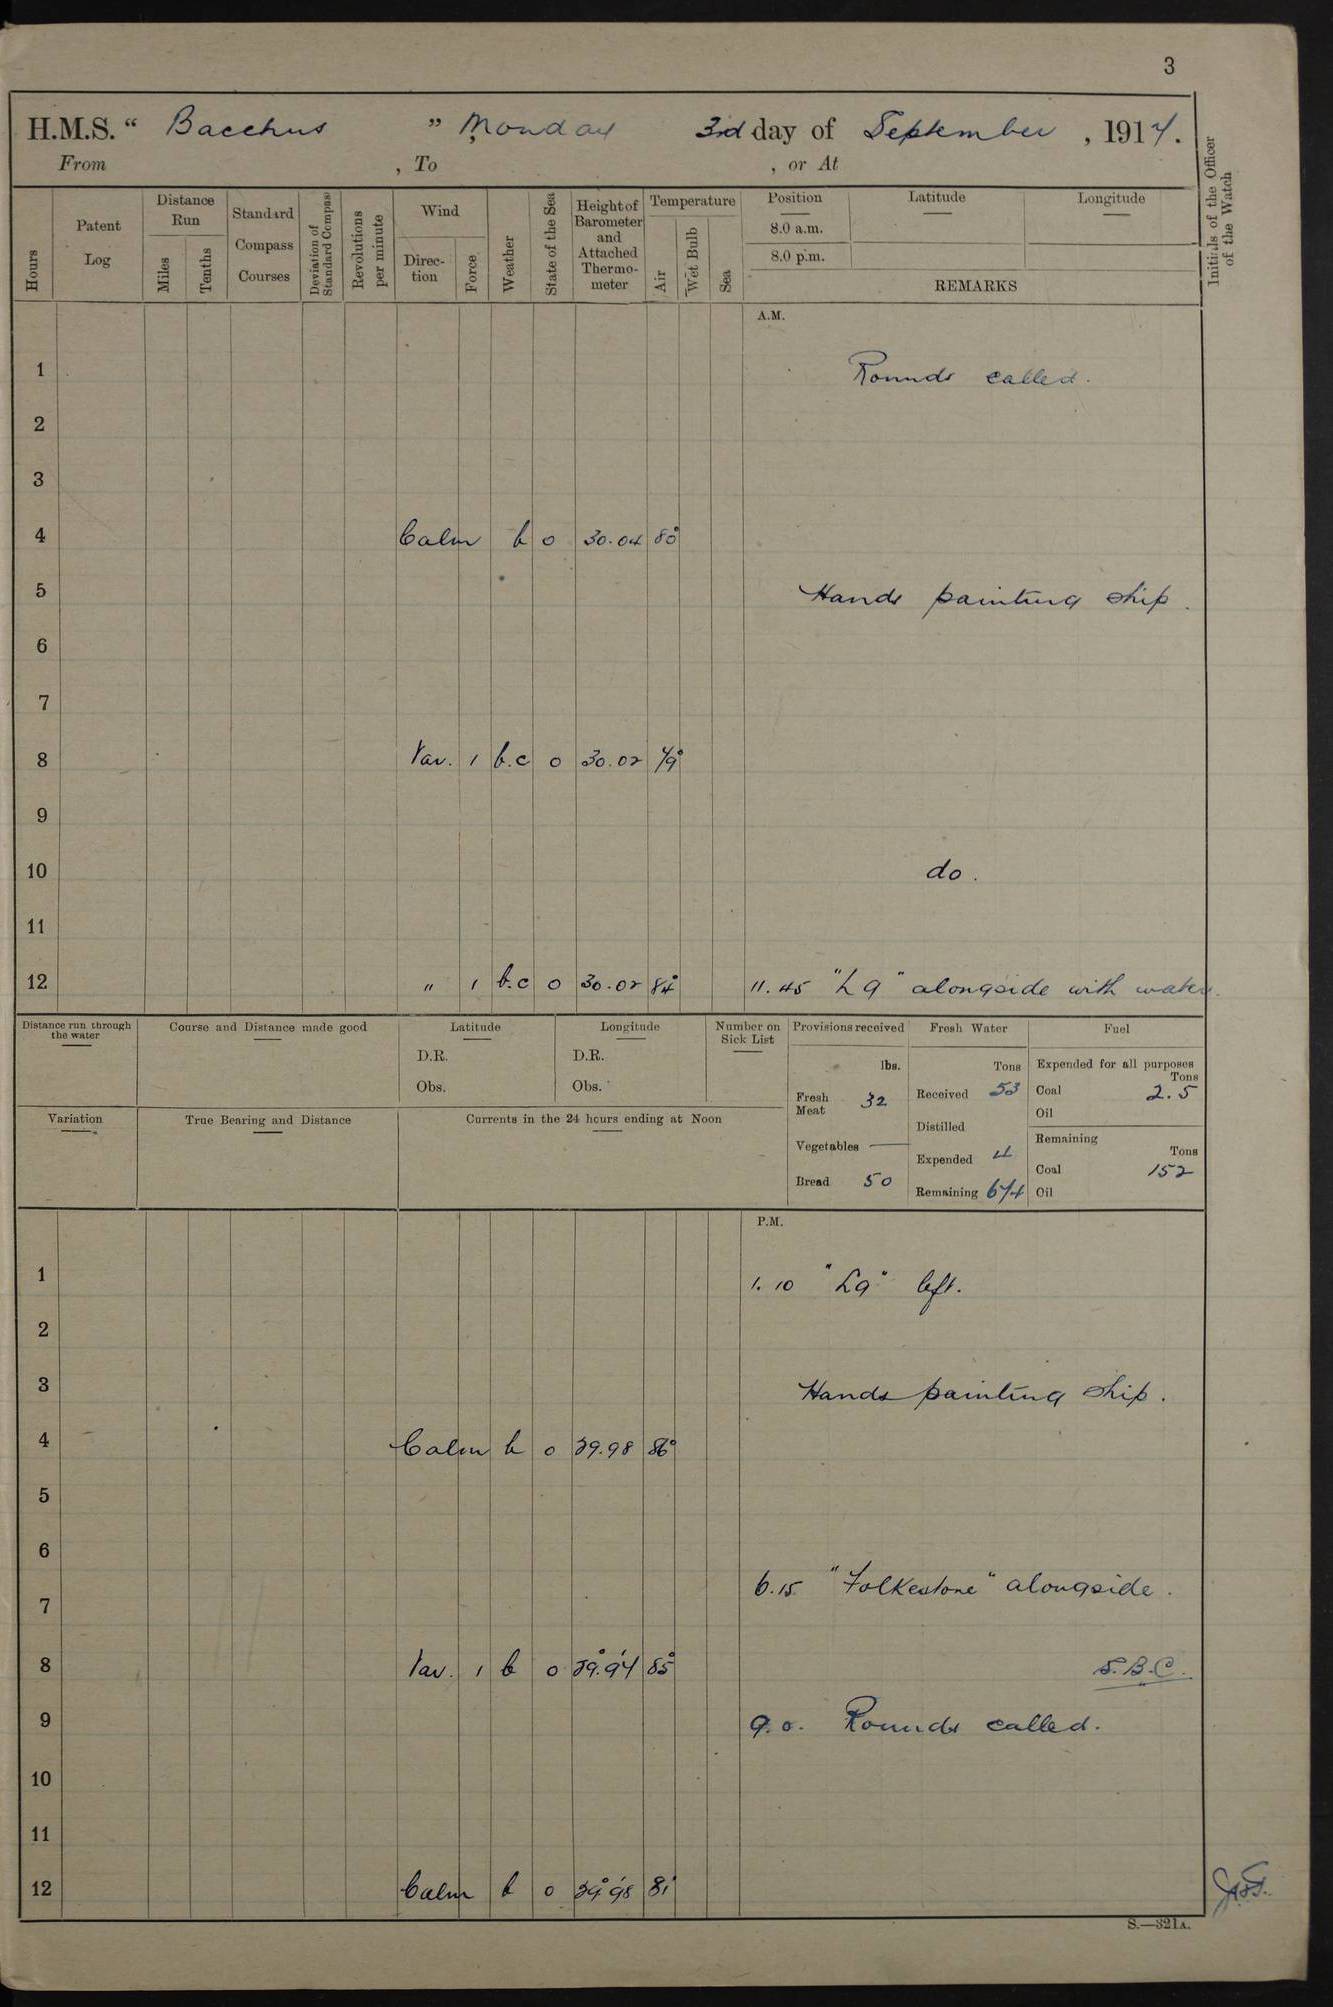 3
H.M.S. “ Bacchus ” Monday 3rd day of September , 1917.
From , To , or At
Hours
Patent Log
Distance Run
Miles
Tenths
Standard Compass Courses
Deviation of Standard Compass
Revolutions per minute
Wind
Direc-tion
Force
Weather
State of the Sea
Height of Barometer and Attached Thermo-meter
Temperature
Air
Wet Bulb
Sea
Position
8.0 a.m.
8.0 p.m.
Latitude
Longitude
REMARKS
Initials of the Officer of the Watch
A.M.
1 Rounds called.
2
3
4 Calm b 0 30.04 80°
5 Hands painting ship.
6
7
8 Var. 1 b.c 0 30.02 79°
9
10 do.
11
12 " 1 b.c 0 30.02 84° 11.45 "L9" alongside with water.
Distance run through the water
Course and Distance made good
Latitude
D.R.
Obs.
Longitude
D.R.
Obs.
Number on Sick List
Provisions received
lbs.
Fresh Meat 32
Vegetables —
Bread 50
Fresh Water
Tons
Received 53
Distilled
Expended 4
Remaining 674
Fuel
Expended for all purposes
Tons
Coal 2.5
Oil
Remaining
Tons
Coal 152
Oil
Variation
True Bearing and Distance
Currents in the 24 hours ending at Noon
P.M.
1 1.10 "L9" left.
2
3 Hands painting ship.
4 Calm b 0 29.98 86°
5
6
6.15 "Folkestone" alongside.
7
8 Var. 1 b 0 29.94 85° S.B.C.
9 9.0. Rounds called.
10
11
12 Calm b 0 29.98 81°
S.—321A.